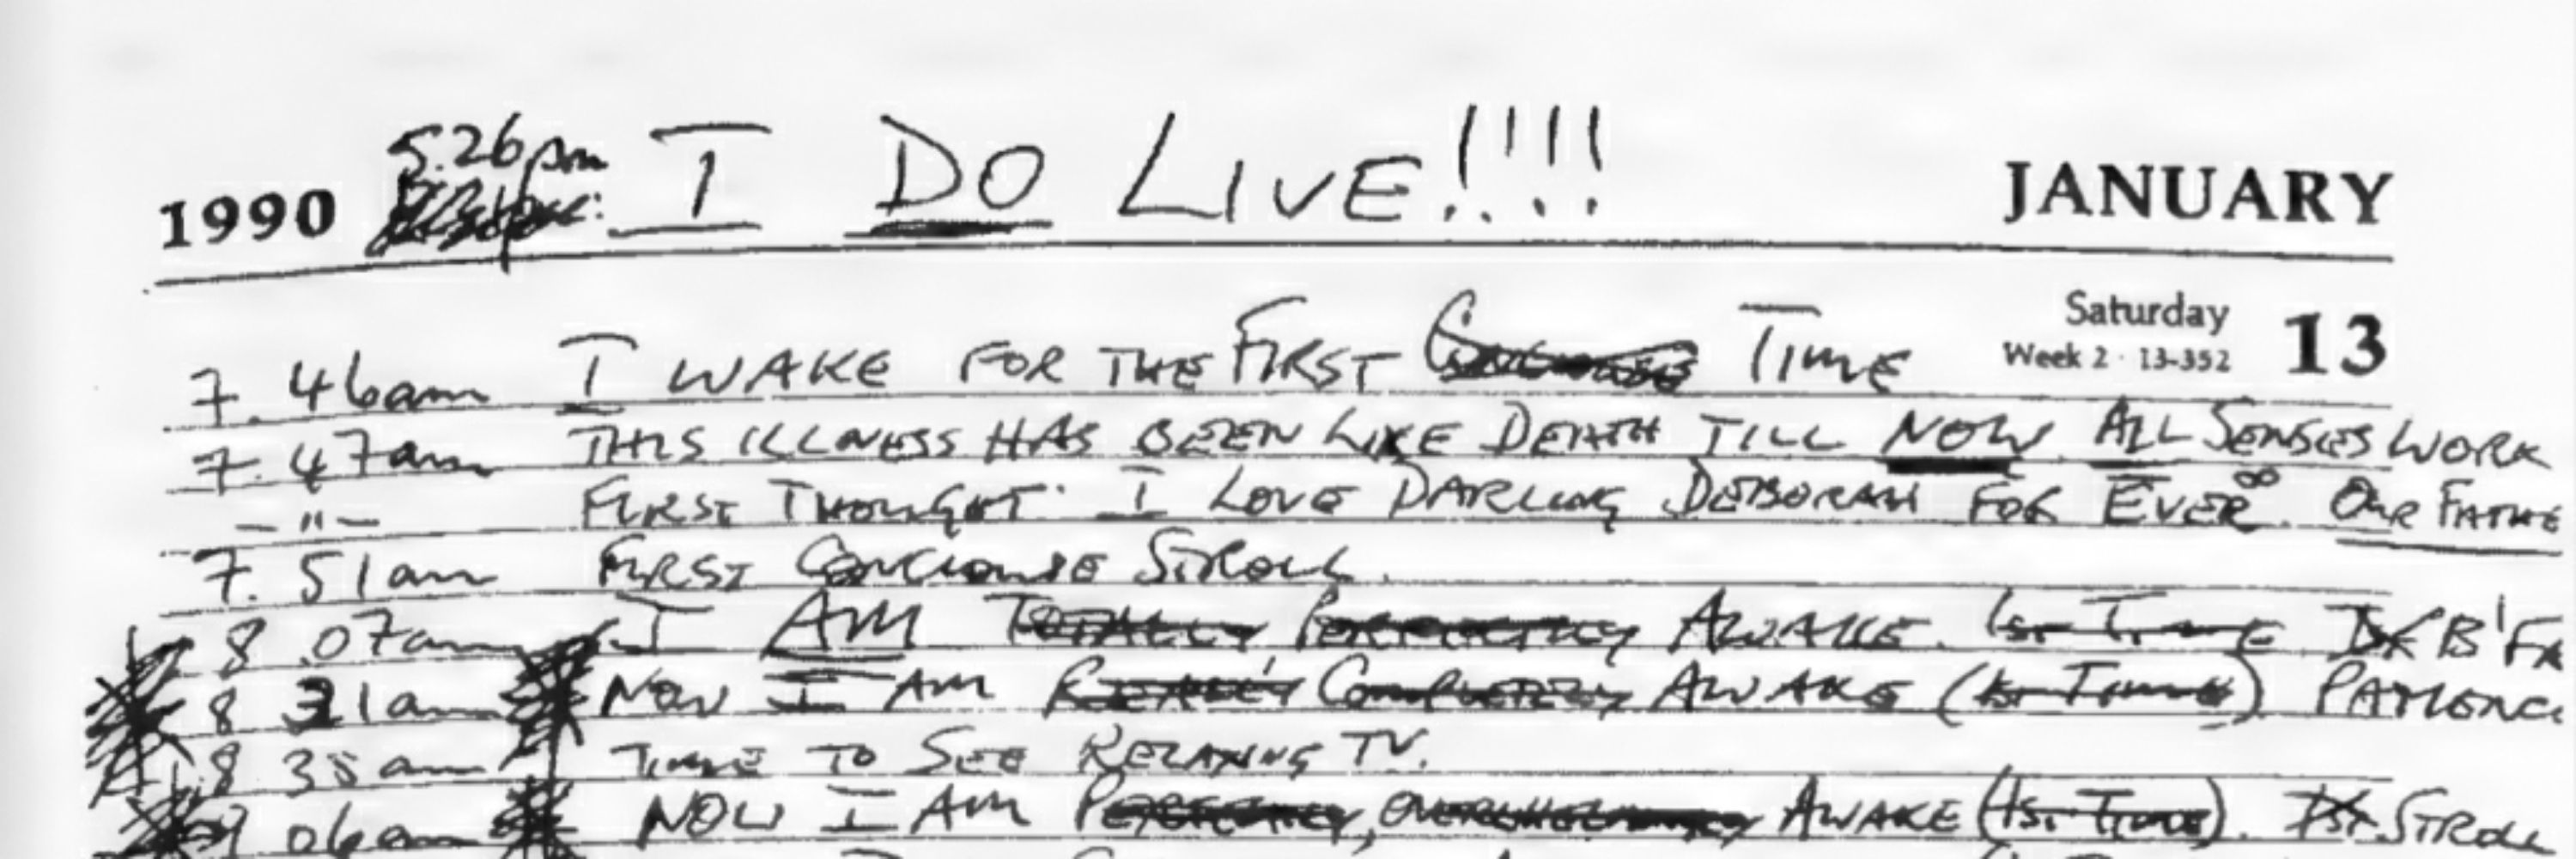 5.26pm: I DO LIVE!!!!
1990 JANUARY
Saturday
Week 2 · 13-352 13
7.46am I WAKE FOR THE FIRST TIME
7.47am THIS ILLNESS HAS BEEN LIKE DEATH TILL NOW. ALL SENSES WORK
-"- FIRST THOUGHT: I LOVE DARLING DEBORAH FOR EVER∞. OUR FATHE
7.51am FIRST STROLL.
8.07am I AM TOTALLY PERFECTLY AWAKE. 1ST TIME B'FA
8 31am NOW I AM COMPLETELY AWAKE (1ST TIME) PATIENC
8 35am TIME TO SEE RELAXING TV.
9 06am NOW I AM PERFECTLY, OVERWHELMINGLY AWAKE (1ST TIME). 1ST STROLL